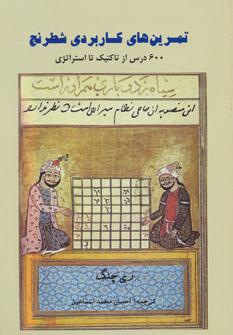 تمرین‌های کاربردی شطرنج
۶۰۰ درس از تاکتیک تا استراتژی
سیاه زد و بازی
ری چنگ
ترجمه: احسان محمد اسماعیل